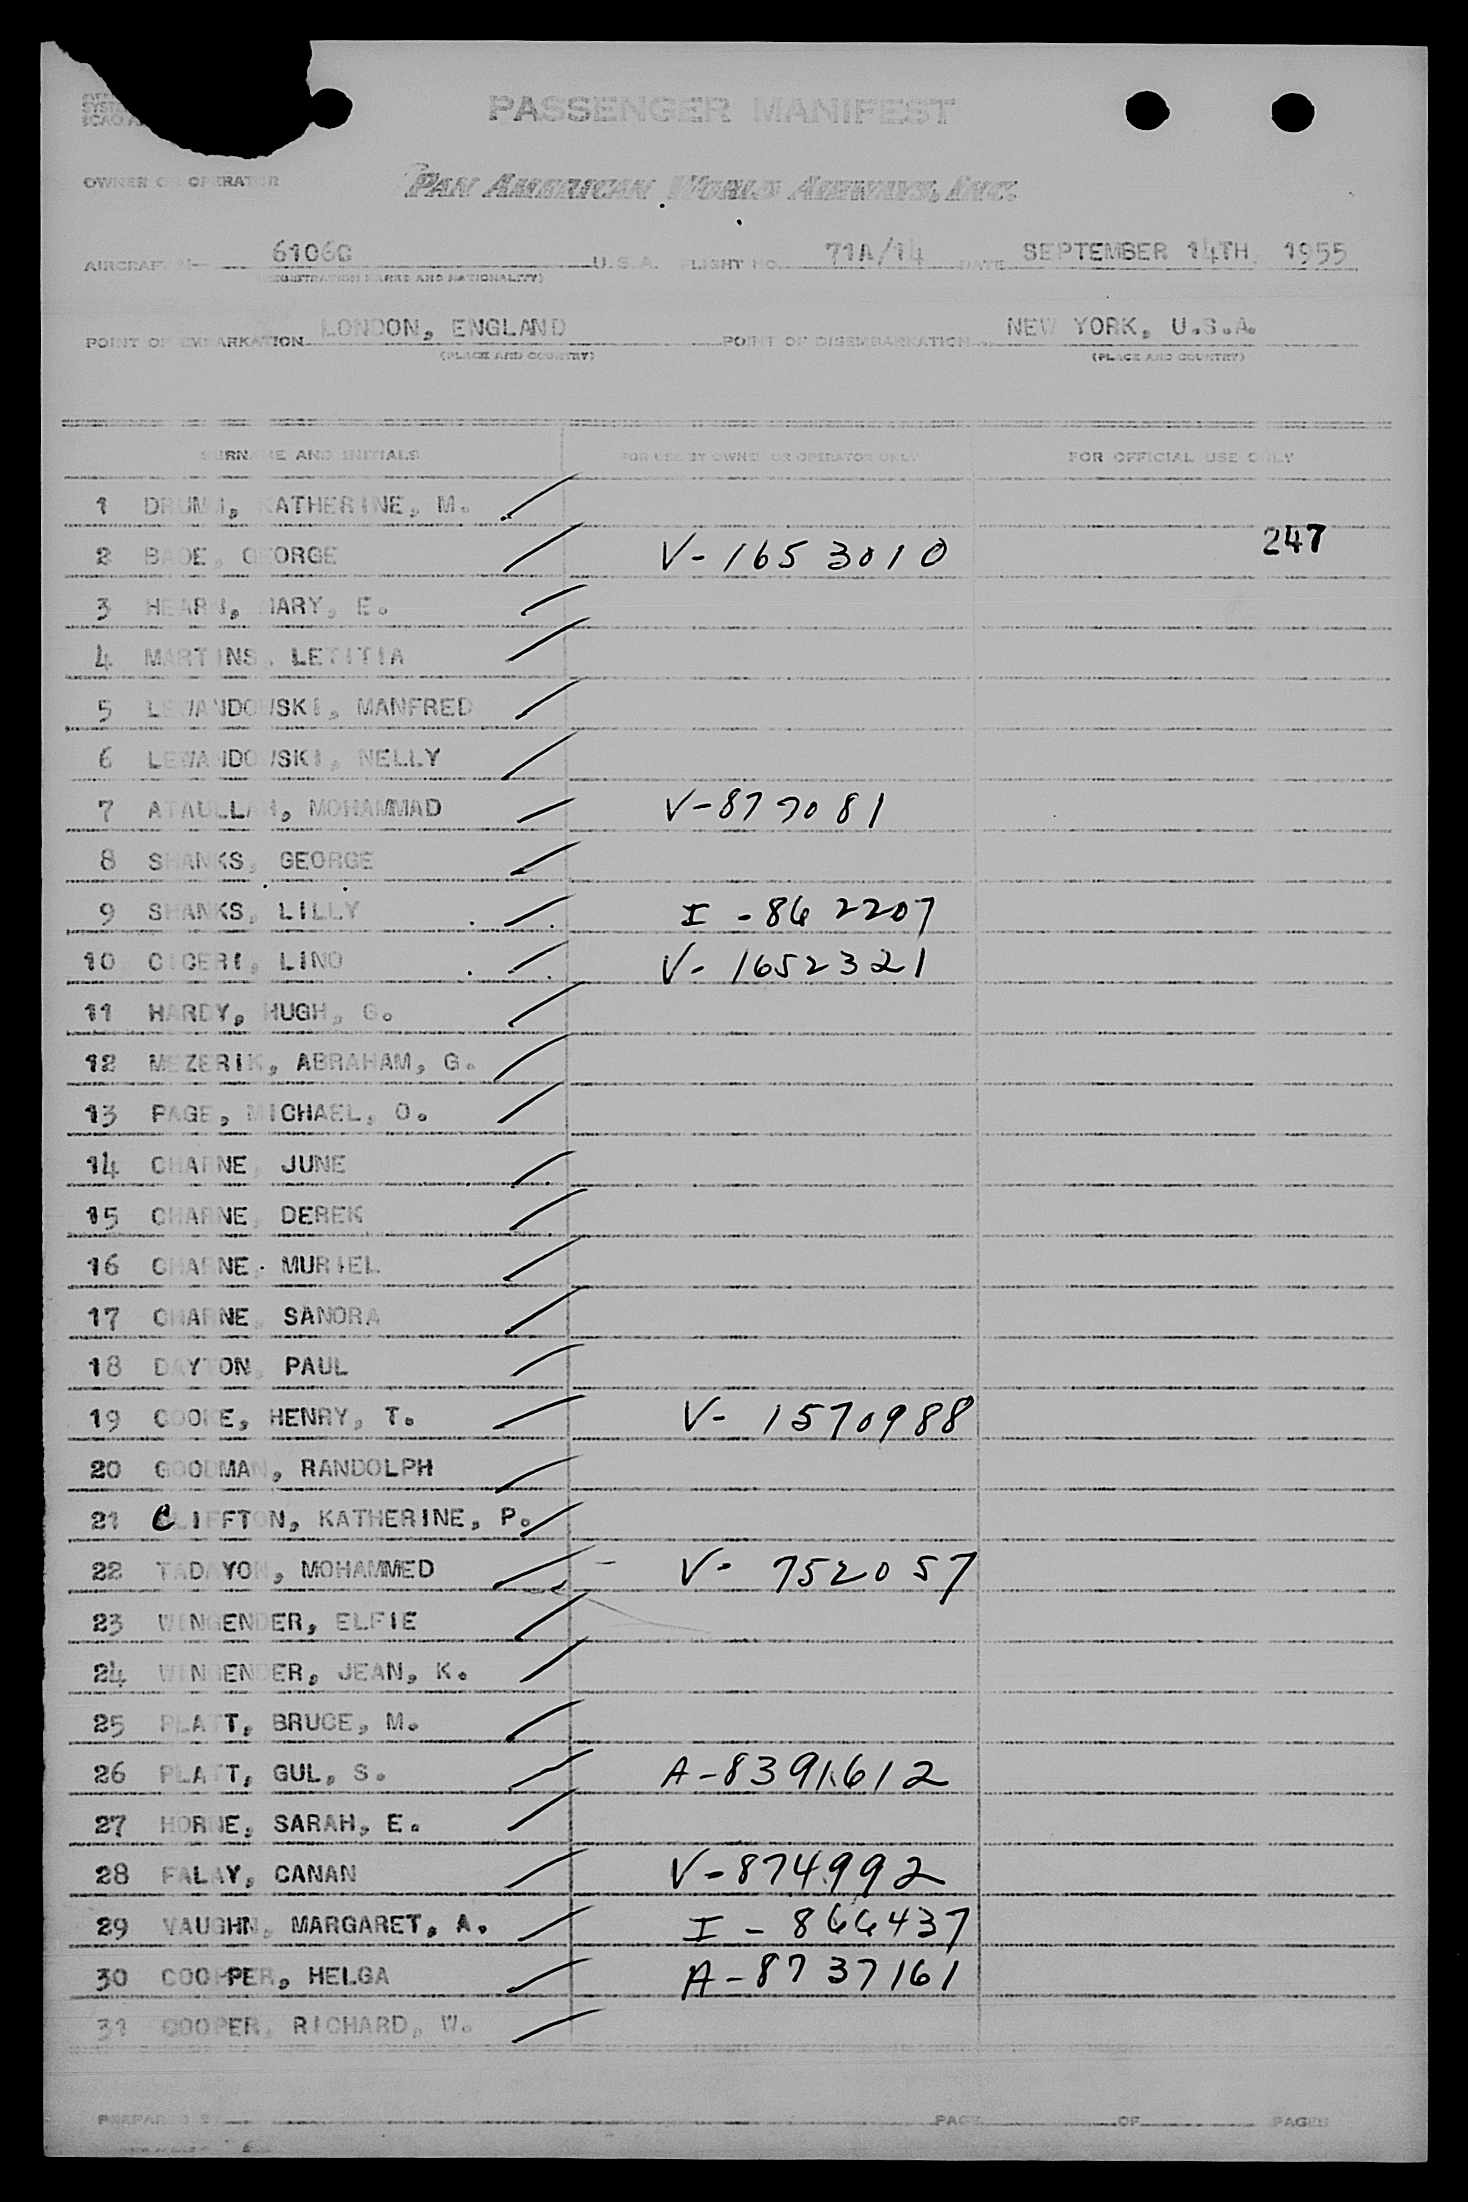 PASSENGER MANIFEST
OWNER OR OPERATOR PAN AMERICAN WORLD AIRWAYS, INC.
AIRCRAFT N- 6106C U.S.A. FLIGHT NO. 71A/14 DATE SEPTEMBER 14TH, 1955
(REGISTRATION MARKS AND NATIONALITY)
POINT OF EMBARKATION LONDON, ENGLAND POINT OF DISEMBARKATION NEW YORK, U.S.A.
(PLACE AND COUNTRY) (PLACE AND COUNTRY)
SURNAME AND INITIALS FOR USE BY OWNER OR OPERATOR ONLY FOR OFFICIAL USE ONLY
1 DRUMM, KATHERINE, M.
2 BADE, GEORGE V-1653010 247
3 HEARN, MARY, E.
4 MARTINS, LETITIA
5 LEWANDOWSKI, MANFRED
6 LEWANDOWSKI, NELLY
7 ATAULLAH, MOHAMMAD V-877081
8 SHANKS, GEORGE
9 SHANKS, LILLY I-862207
10 CICERI, LINO V-1652321
11 HARDY, HUGH, G.
12 MEZERIK, ABRAHAM, G.
13 PAGE, MICHAEL, O.
14 CHARNE, JUNE
15 CHARNE, DEREK
16 CHARNE, MURIEL
17 CHARNE, SANDRA
18 DAYTON, PAUL
19 COOKE, HENRY, T. V-1570988
20 GOODMAN, RANDOLPH
21 CLIFFTON, KATHERINE, P.
22 TADAYON, MOHAMMED - V-752057
23 WINGENDER, ELFIE
24 WINGENDER, JEAN, K.
25 PLATT, BRUCE, M.
26 PLATT, GUL, S. A-8391612
27 HORNE, SARAH, E.
28 FALAY, CANAN V-874992
29 VAUGHN, MARGARET, A. I-866437
30 COOPER, HELGA A-8737161
31 COOPER, RICHARD, W.
PREPARED BY PAGE OF PAGES